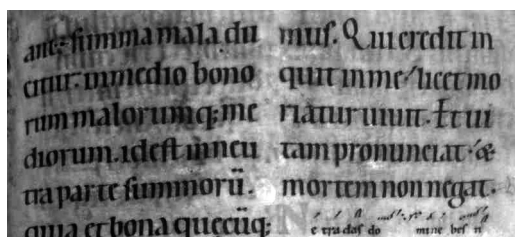 summa mala du
in medio bono
rum malorumq; me
diorum. idest in neu
tra parte summorū.
quia et bona quecūq;
mus. Qui credit in
quit in me / licet mo
riatur uiuit. Et ui
tam pronunciat. &
mortem non negat.
e tra das do mine bes ti